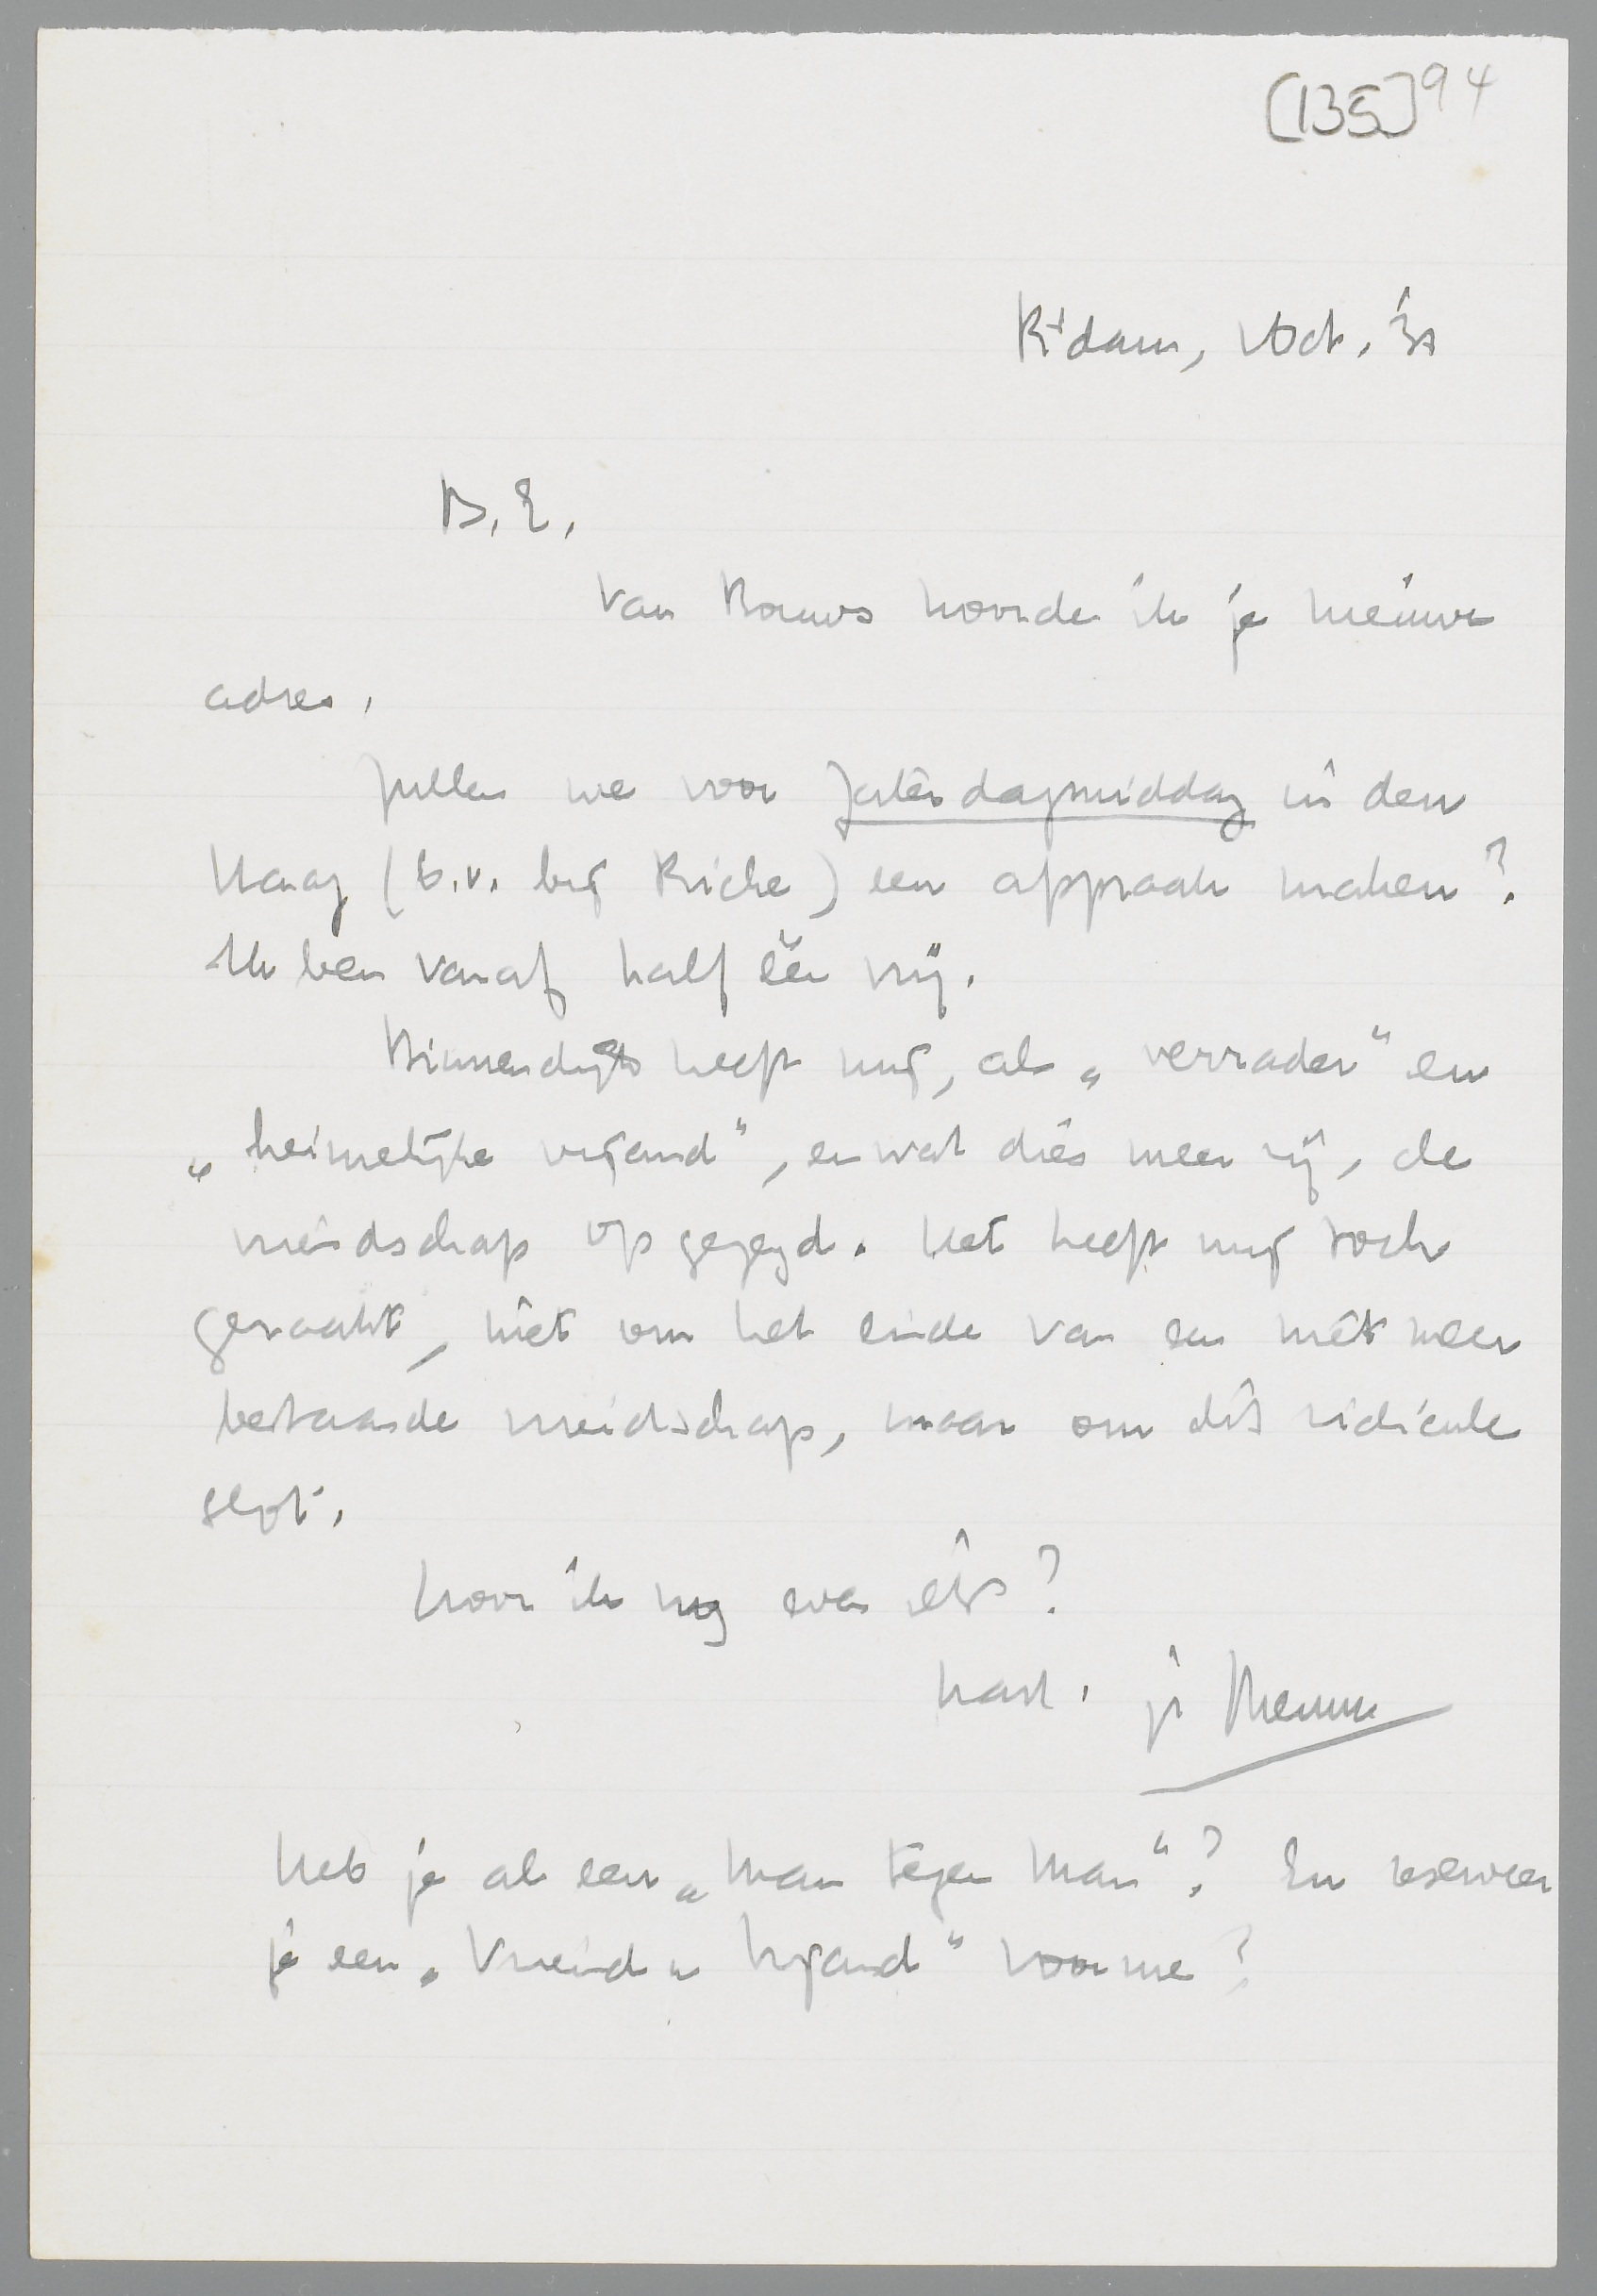 [135] 94
R'dam, 1 Oct. '31
B. E.
Van Bouws hoorde ik je nieuwe
adres.
Zullen we voor Zaterdagmiddag in den
Haag (b.v. bij Riche) een afspraak maken?
Ik ben vanaf half één vrij.
Binnendijk heeft mij, als „verrader" en
„heimelijke vijand", en wat dies meer zij, de
vriendschap opgezegd. Het heeft mij toch
geraakt, niet om het einde van een niet meer
bestaande vriendschap, maar om dit ridicule
slot.
Hoor ik nog even iets?
hart. je Menno
Heb je al een „Man tegen Man"? En reserveer
je een „Vriend en Vijand" voor me?